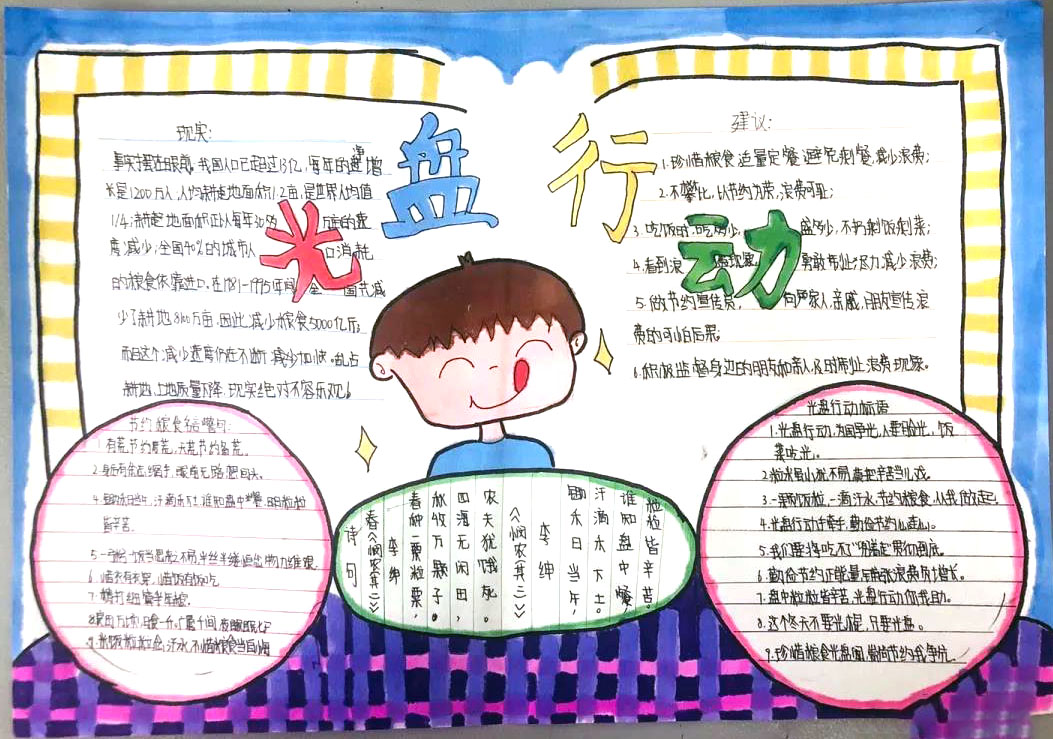 光盘行动
现实:
事实摆在眼前,我国人口已超过13亿,每年的净增
长是1200万人,人均耕地面积1.2亩,是世界人均值
1/4;耕地面积正以每年30 万亩的速
度减少;全国40%的城市人口消耗
的粮食依靠进口,在1981-1995年间,全国共减
少了耕地 万亩,因此,减少粮食5000亿斤;
而且这个减少速度仍在不断 减少加快。乱占
耕地,土地质量下降,现实绝对不容乐观。
建议:
1.珍惜粮食,适量定餐,避免剩餐,减少浪费;
2.不攀比,以节约为荣,浪费可耻;
3.吃饭时,吃多少,盛多少,不扔剩饭剩菜;
4.看到浪费现象,勇敢制止,尽力减少浪费;
5.做节约宣传员,向 家人、亲戚、朋友宣传浪
费的可怕后果。
6.积极监督身边的朋友和亲人及时制止浪费现象。
节约粮食名言警句:
1.有荒节约度荒,无荒节约备荒。
2. 有余 缩手,眼前无路想回头。
4.锄禾日当午,汗滴禾下土,谁知盘中餐,粒粒
皆辛苦。
5.一粥一饭当思来之不易,半丝半缕恒念物力维艰。
6.惜衣有衣穿,惜饭有饭吃。
7.
8.
9.
粒粒皆辛苦。
谁知盘中餐,
汗滴禾下土。
锄禾日当午,
李绅
《悯农(其二)》
农夫犹饿死。
四海无闲田,
秋收万颗子。
春种一粟粒粟,
李绅
春《悯农(其二)》
诗句
光盘行动标语
1.光盘行动,为国争光,人要脸光,饭
菜吃光。
2.粒米虽小犹不易,莫把辛苦当儿戏。
3.一颗颗饭粒,一滴滴汗水,节约粮食,从我做起。
4.光盘行动手牵手,勤俭节约心连心。
5.我们要将吃不了“兜着走”贯彻到底。
6.勤俭节约正能量,
7.盘中粒粒皆辛苦,光盘行动你我助。
8.这个冬天不要光棍,只要光盘。
9.珍惜粮食光盘 ,勤俭节约我争先。